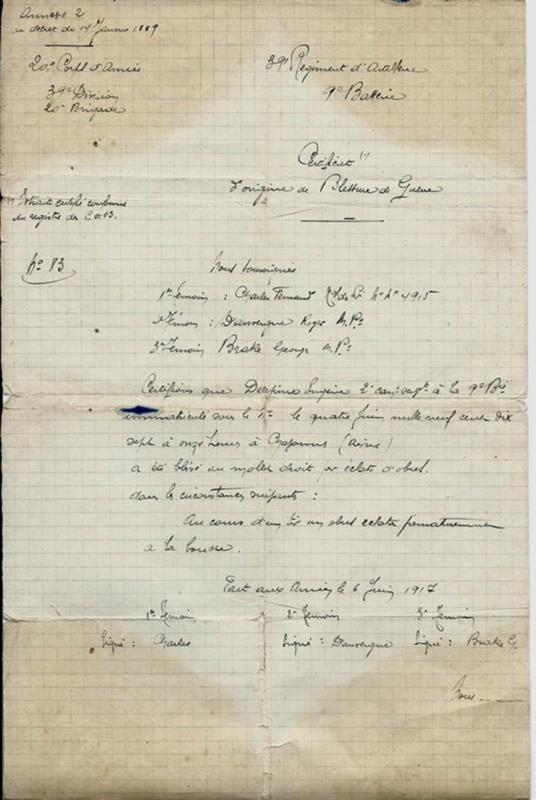 Annexe 2
au décret du 14 Janvier 1889
20e Corps d'Armée
39e Régiment d'Artillerie
39e Division
9e Batterie
20e Brigade
Certificat (1)
d'origine de Blessure de Guerre
(1) Extrait certifié conforme
au registre des C.O.B.
No 83
Nous soussignés
1er Temoin : Charles Fernand 4915
2e Témoin : Dauvergne Roger M.Ps
3e Temoin Brake George M.Ps
Certifions que Eugène 2e à la 9e Bie
immatriculé sous le No le quatre Juin mille neuf cent dix
sept à onze heures à (Aisne)
a été blessé au mollet droit par éclats d'obus.
dans les circonstances suivantes :
Au cours d'un tir un obus eclata prematurement
a la bouche.
Fait aux Armées le 6 Juin 1917
1er Temoin 2e Temoin 3e Temoin
Signé : Charles Signé : Dauvergne Signé : Brake G.
Nous